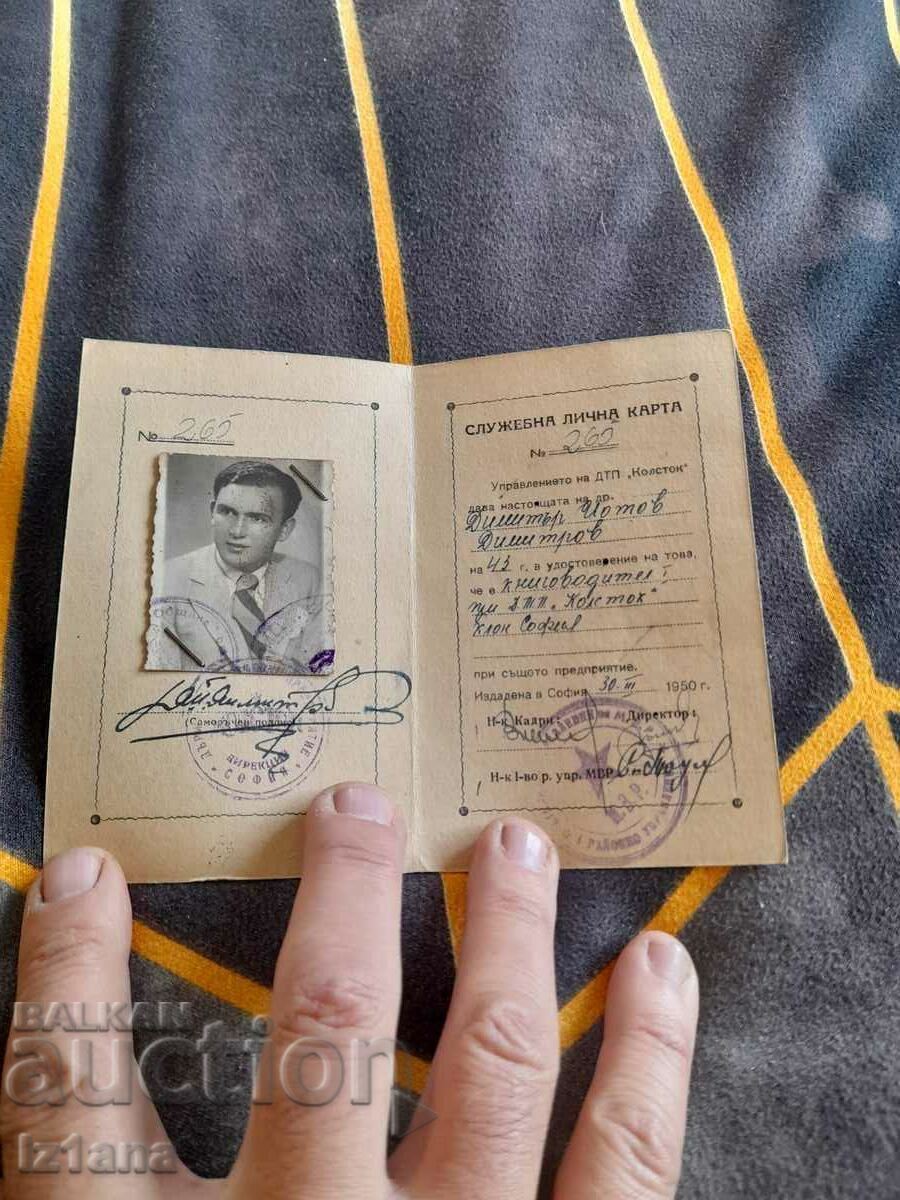 № 265
(Саморъчен подпис)
ДИРЕКЦИЯ
СОФИЯ
СЛУЖЕБНА ЛИЧНА КАРТА
№ 265
Управлението на ДТП „Колсток"
дава настоящата на др.
Димитър Йотов
Димитров
на 42 г. в удостоверение на това,
че е книговодител I
при ДТП „Колсток"
клон София
при същото предприятие.
Издадена в София 30.III 1950 г.
Н-к Кадри: Директор:
Н-к I-во р. упр. МВР
BALKAN
auction
iz1ana